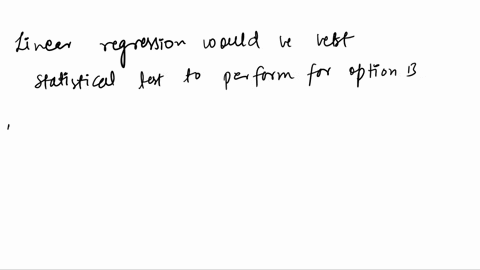 Linear regression would be best
statistical test to perform for option B